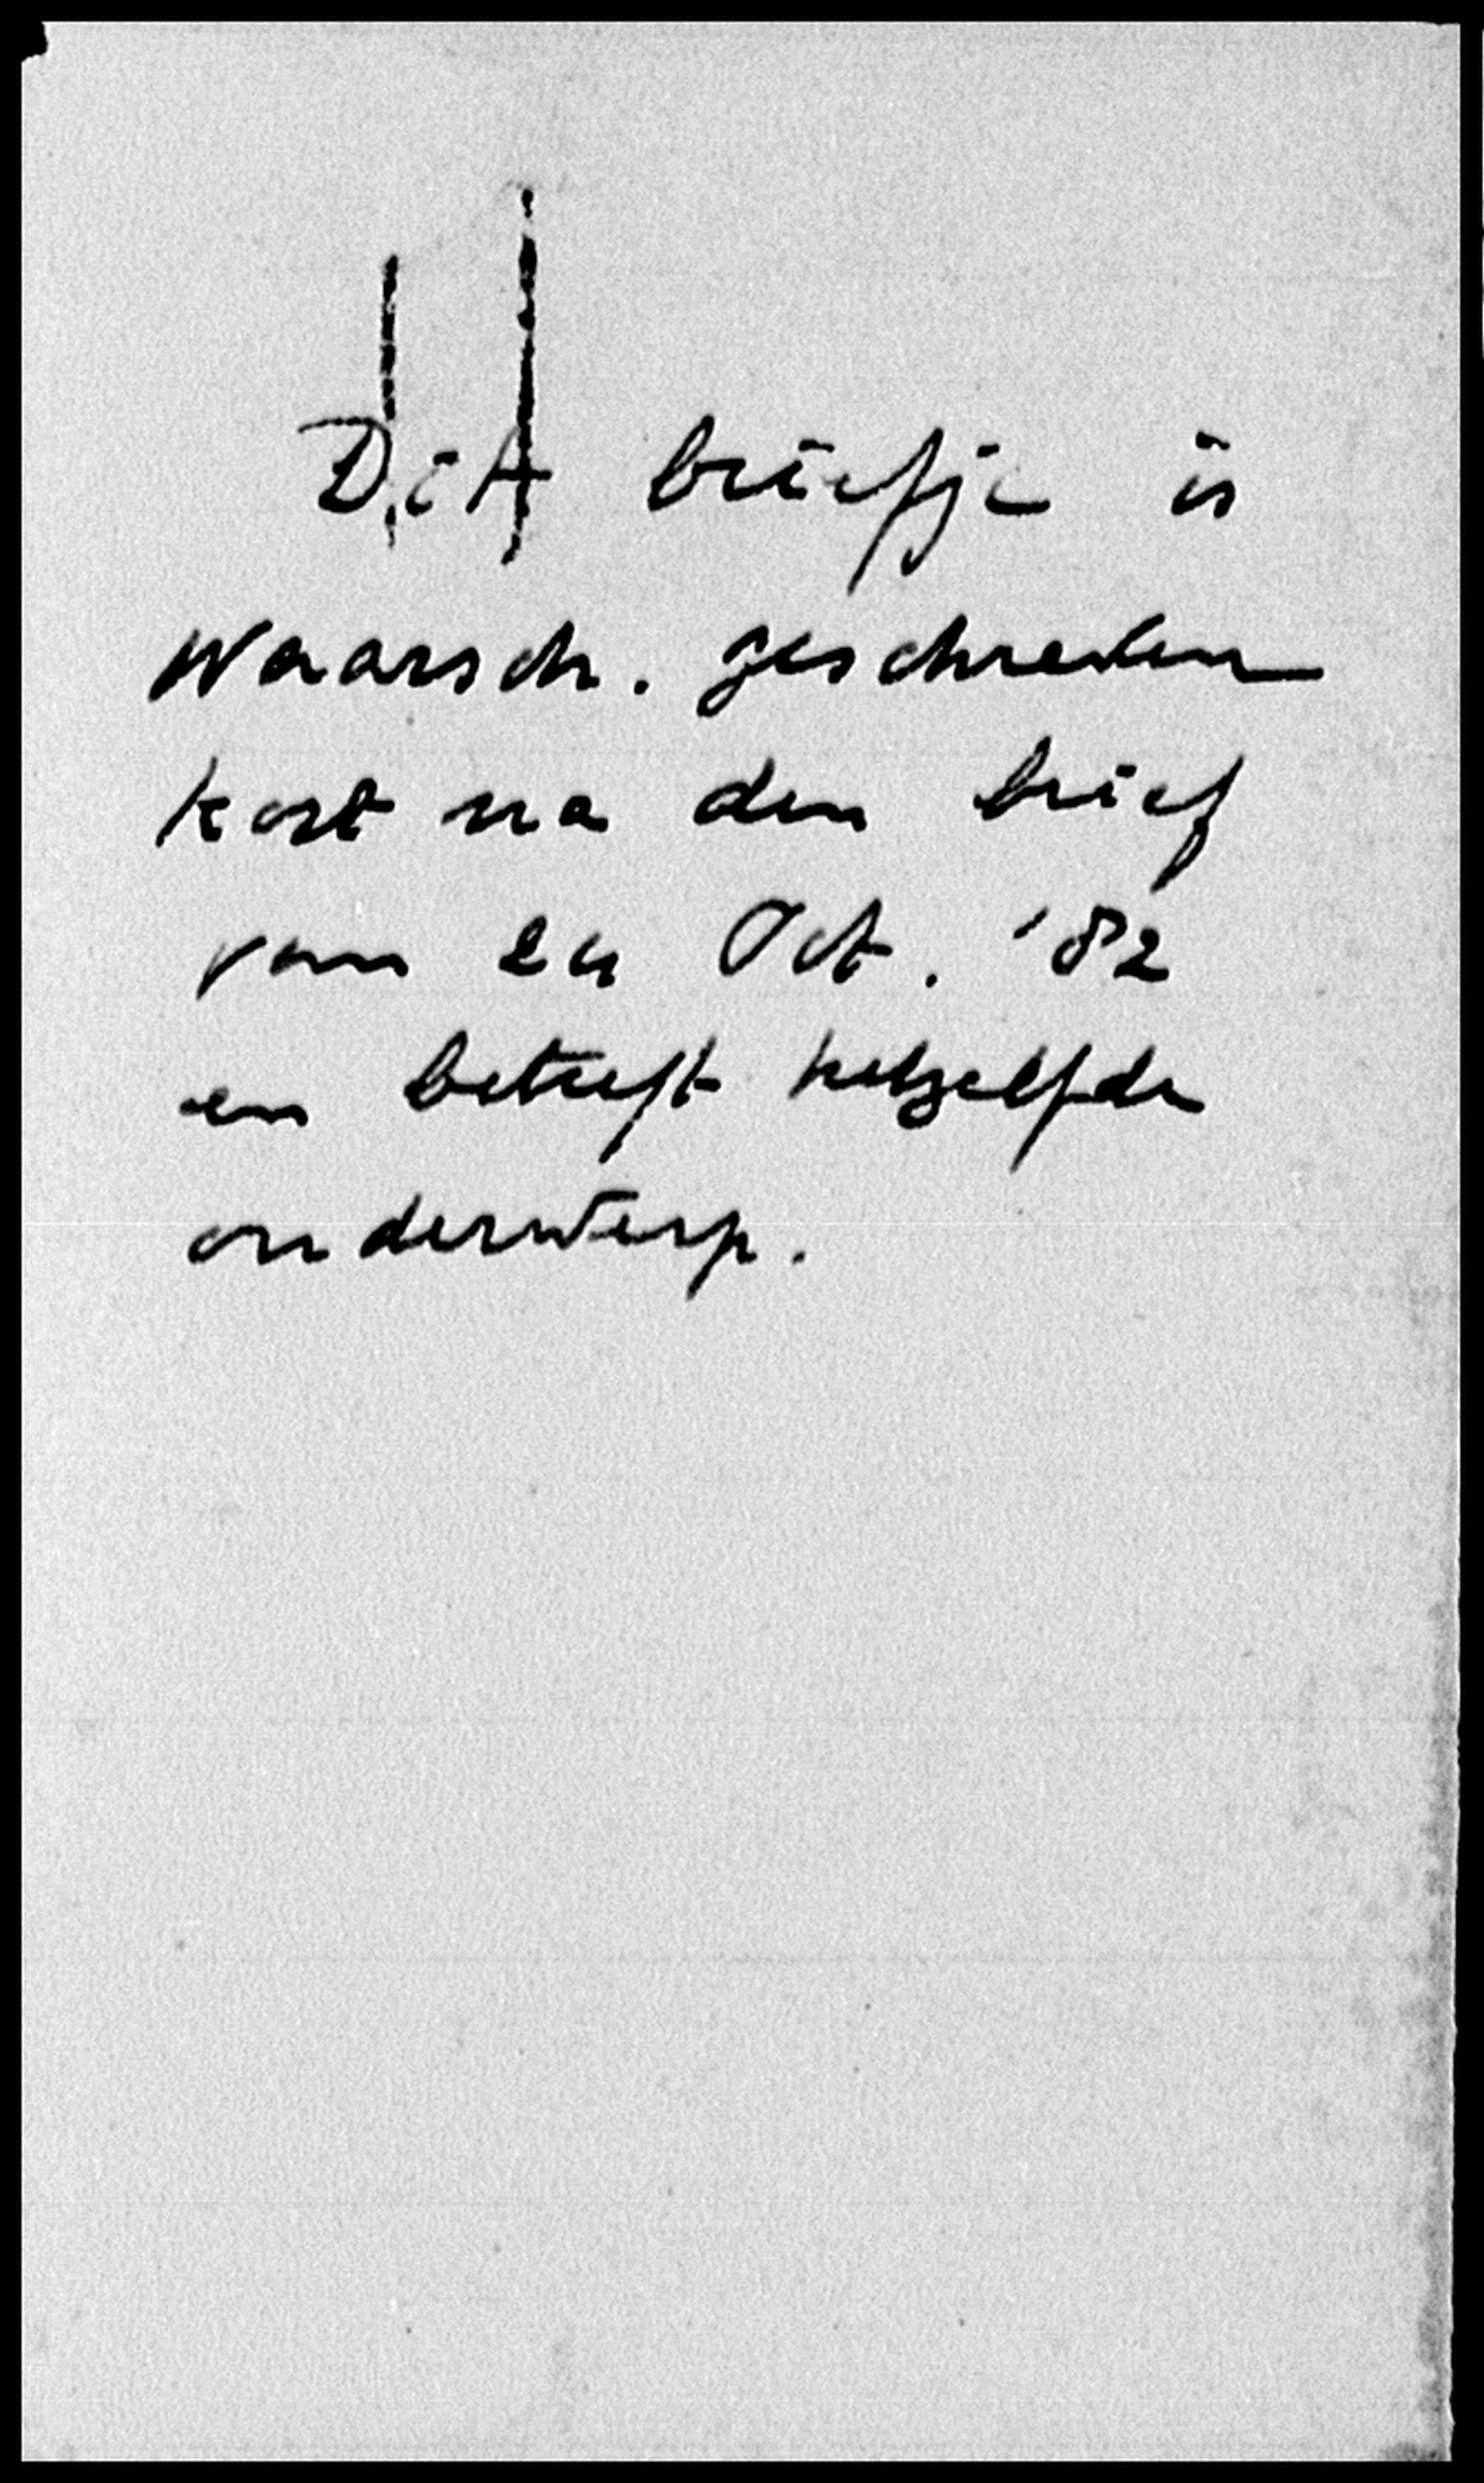 Dit briefje is
waarsch. geschreven
kort na den brief
van 24 Oct. '82
en betreft hetzelfde
onderwerp.